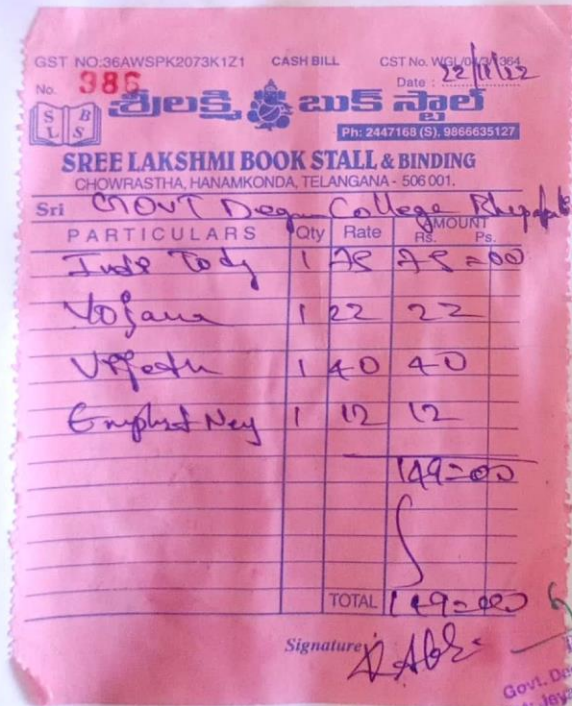 GST NO:36AWSPK2073K1Z1 CASH BILL CST No. WGL/04/3/1364
No. 386 Date : 22/11/22
శ్రీలక్ష్మి బుక్ స్టాల్
S B
L S
Ph: 2447168 (S), 9866635127
SREE LAKSHMI BOOK STALL & BINDING
CHOWRASTHA, HANAMKONDA, TELANGANA - 506 001.
Sri GOVT Degree College
PARTICULARS Qty Rate AMOUNT
Rs. Ps.
1 75 75=00
Yojana 1 22 22
1 40 40
1 12 12
149=00
TOTAL 149=00
Signature
Govt.